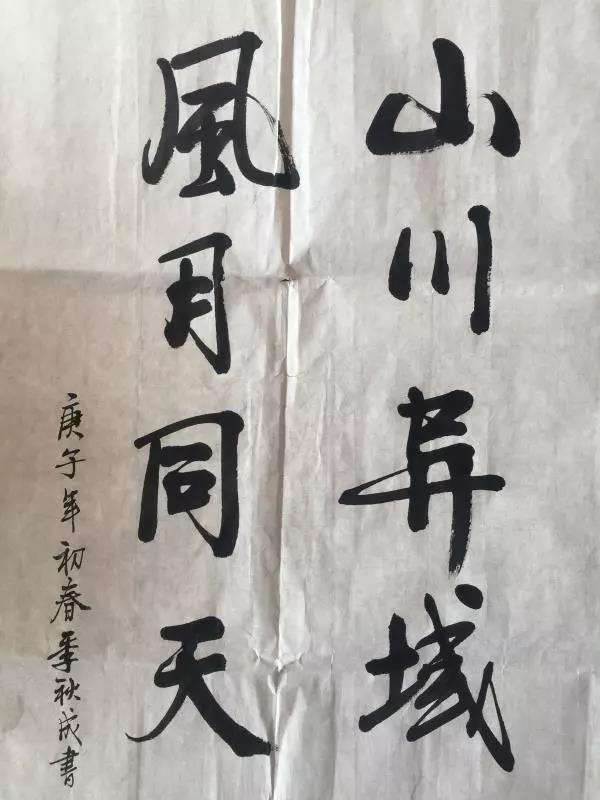 山川异域
風月同天
庚子年初春季秋成書